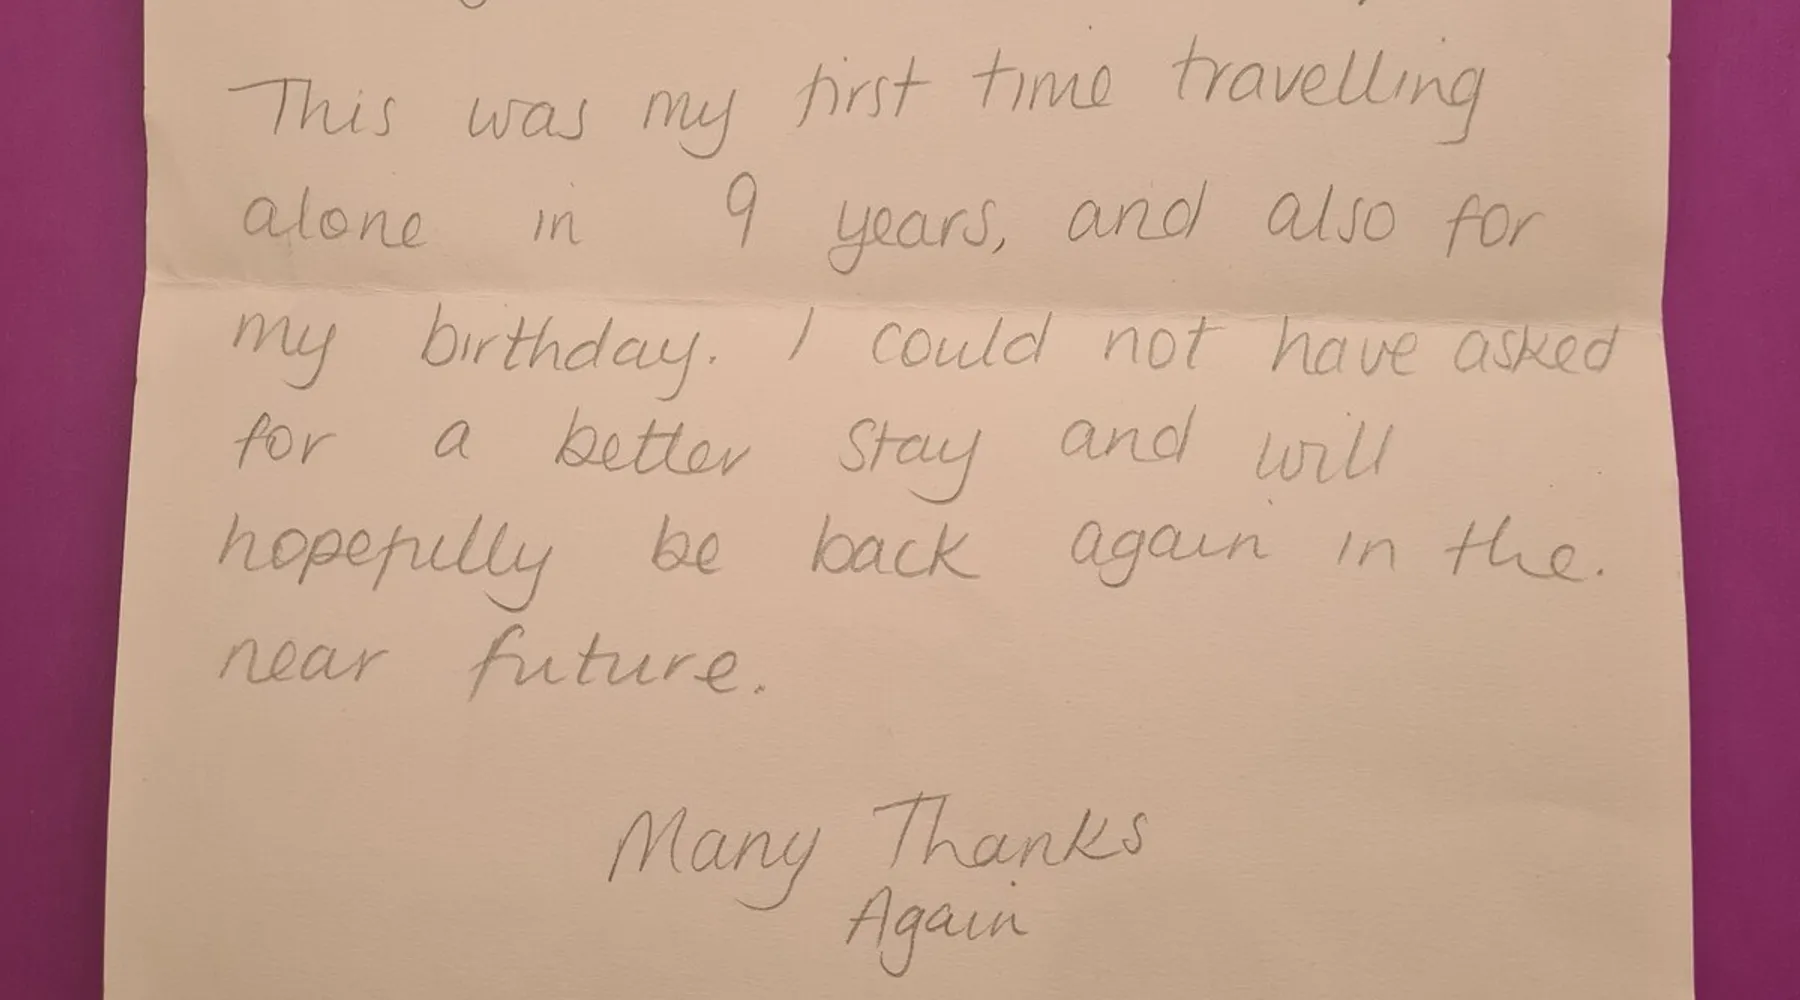 This was my first time travelling
alone in 9 years, and also for
my birthday. I could not have asked
for a better stay and will
hopefully be back again in the.
near future.
Many Thanks
Again